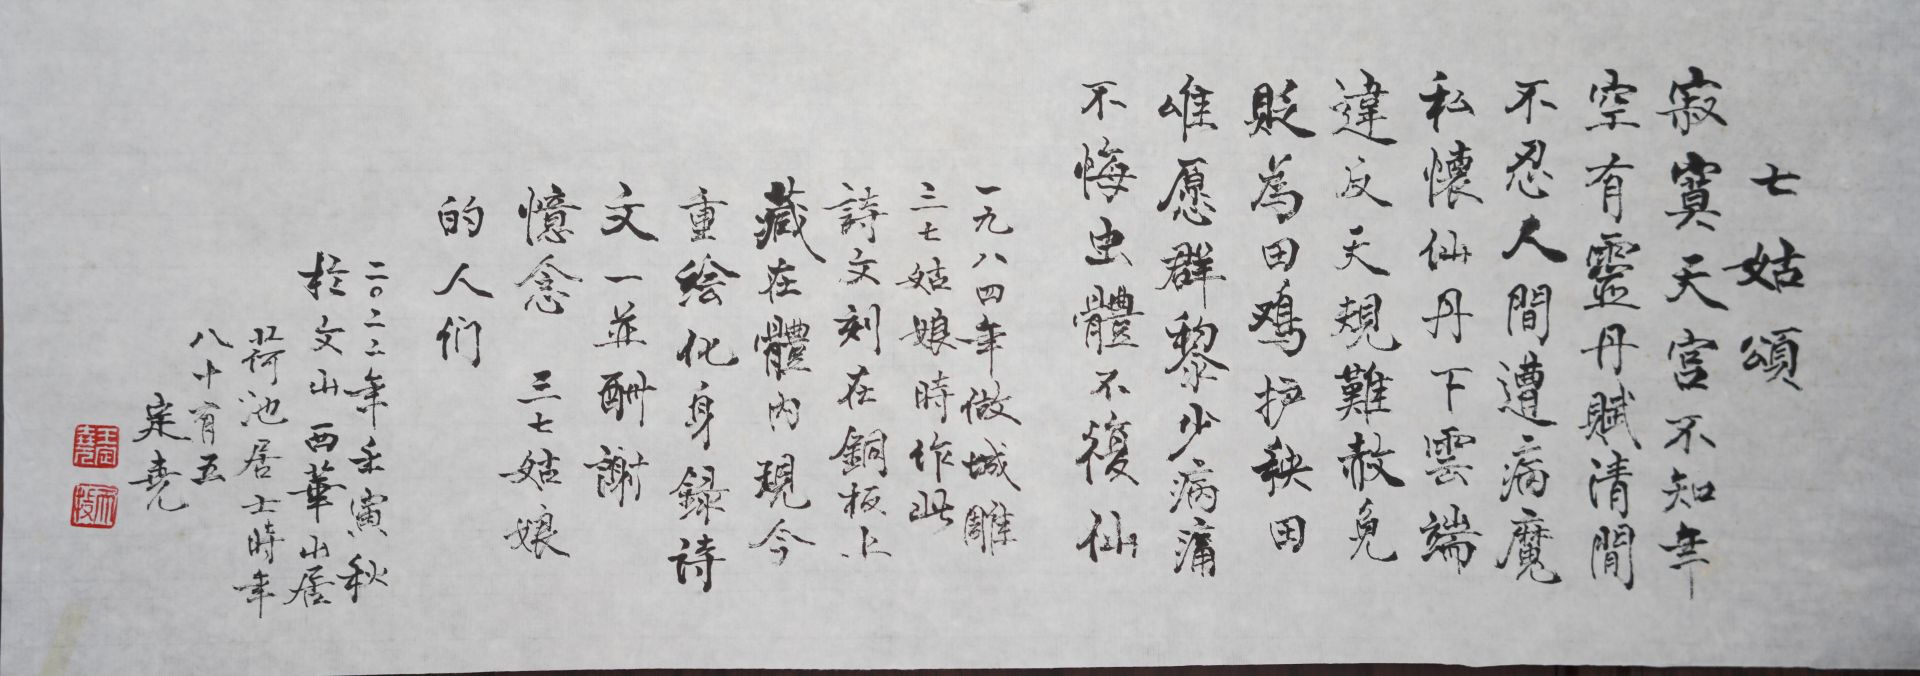 七姑頌
寂寞天宫不知年
空有靈丹賦清閒
不忍人間遭病魔
私懷仙丹下雲端
違反天規難赦免
貶為田鳮护秧田
唯愿群黎少病痛
不悔虫體不復仙
一九八四年做城雕
三七姑娘時作此
詩文刻在銅板上
藏在體內現今
重绘化身録詩
文一並酬謝
憶念 三七姑娘
的人们
二〇二二年壬寅秋
於文山西華山居
荷池居士時年
八十有五